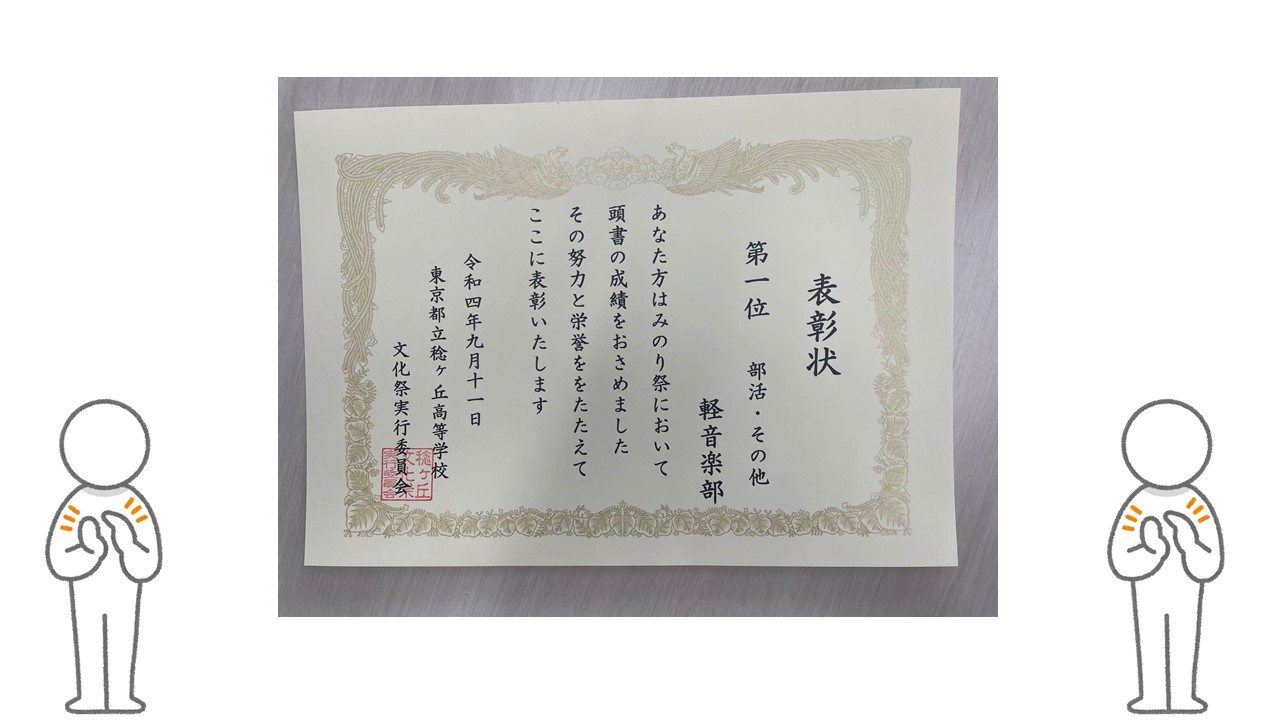 表彰状
第一位 部活・その他
軽音楽部
あなた方はみのり祭において
頭書の成績をおさめました
その努力と栄誉ををたたえて
ここに表彰いたします
令和四年九月十一日
東京都立稔ヶ丘高等学校
文化祭実行委員会
稔ヶ丘
文化祭
実行委員会